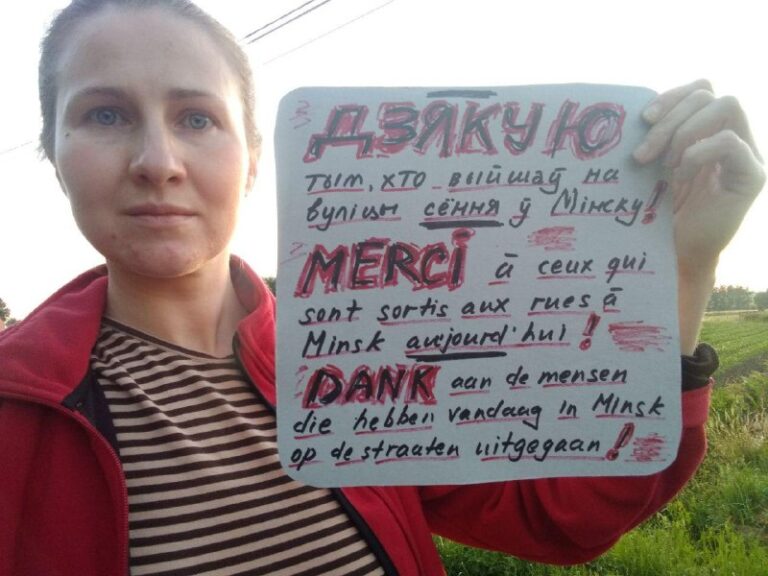 ДЗЯКУЮ
тым, хто выйшаў на
вуліцы сёння ў Мінску!
MERCi à ceux qui
sont sortis aux rues à
Minsk aujourd'hui!
DANK aan de mensen
die hebben vandaag in Minsk
op de straaten uitgegaan!